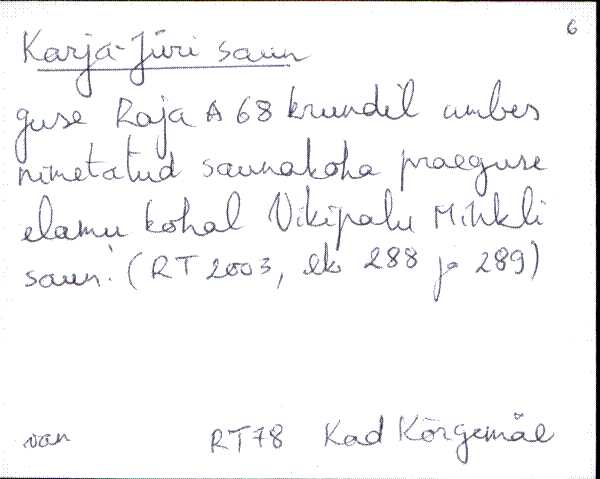 6
Karja-Jüri saun
guse Raja A 68 krundil umbes
nimetatud saunakoha praeguse
elamu kohal Vikipalu Mihkli
saun. (RT 2003, lk 288 ja 289)
van RT78 Kad Kõrgemäe